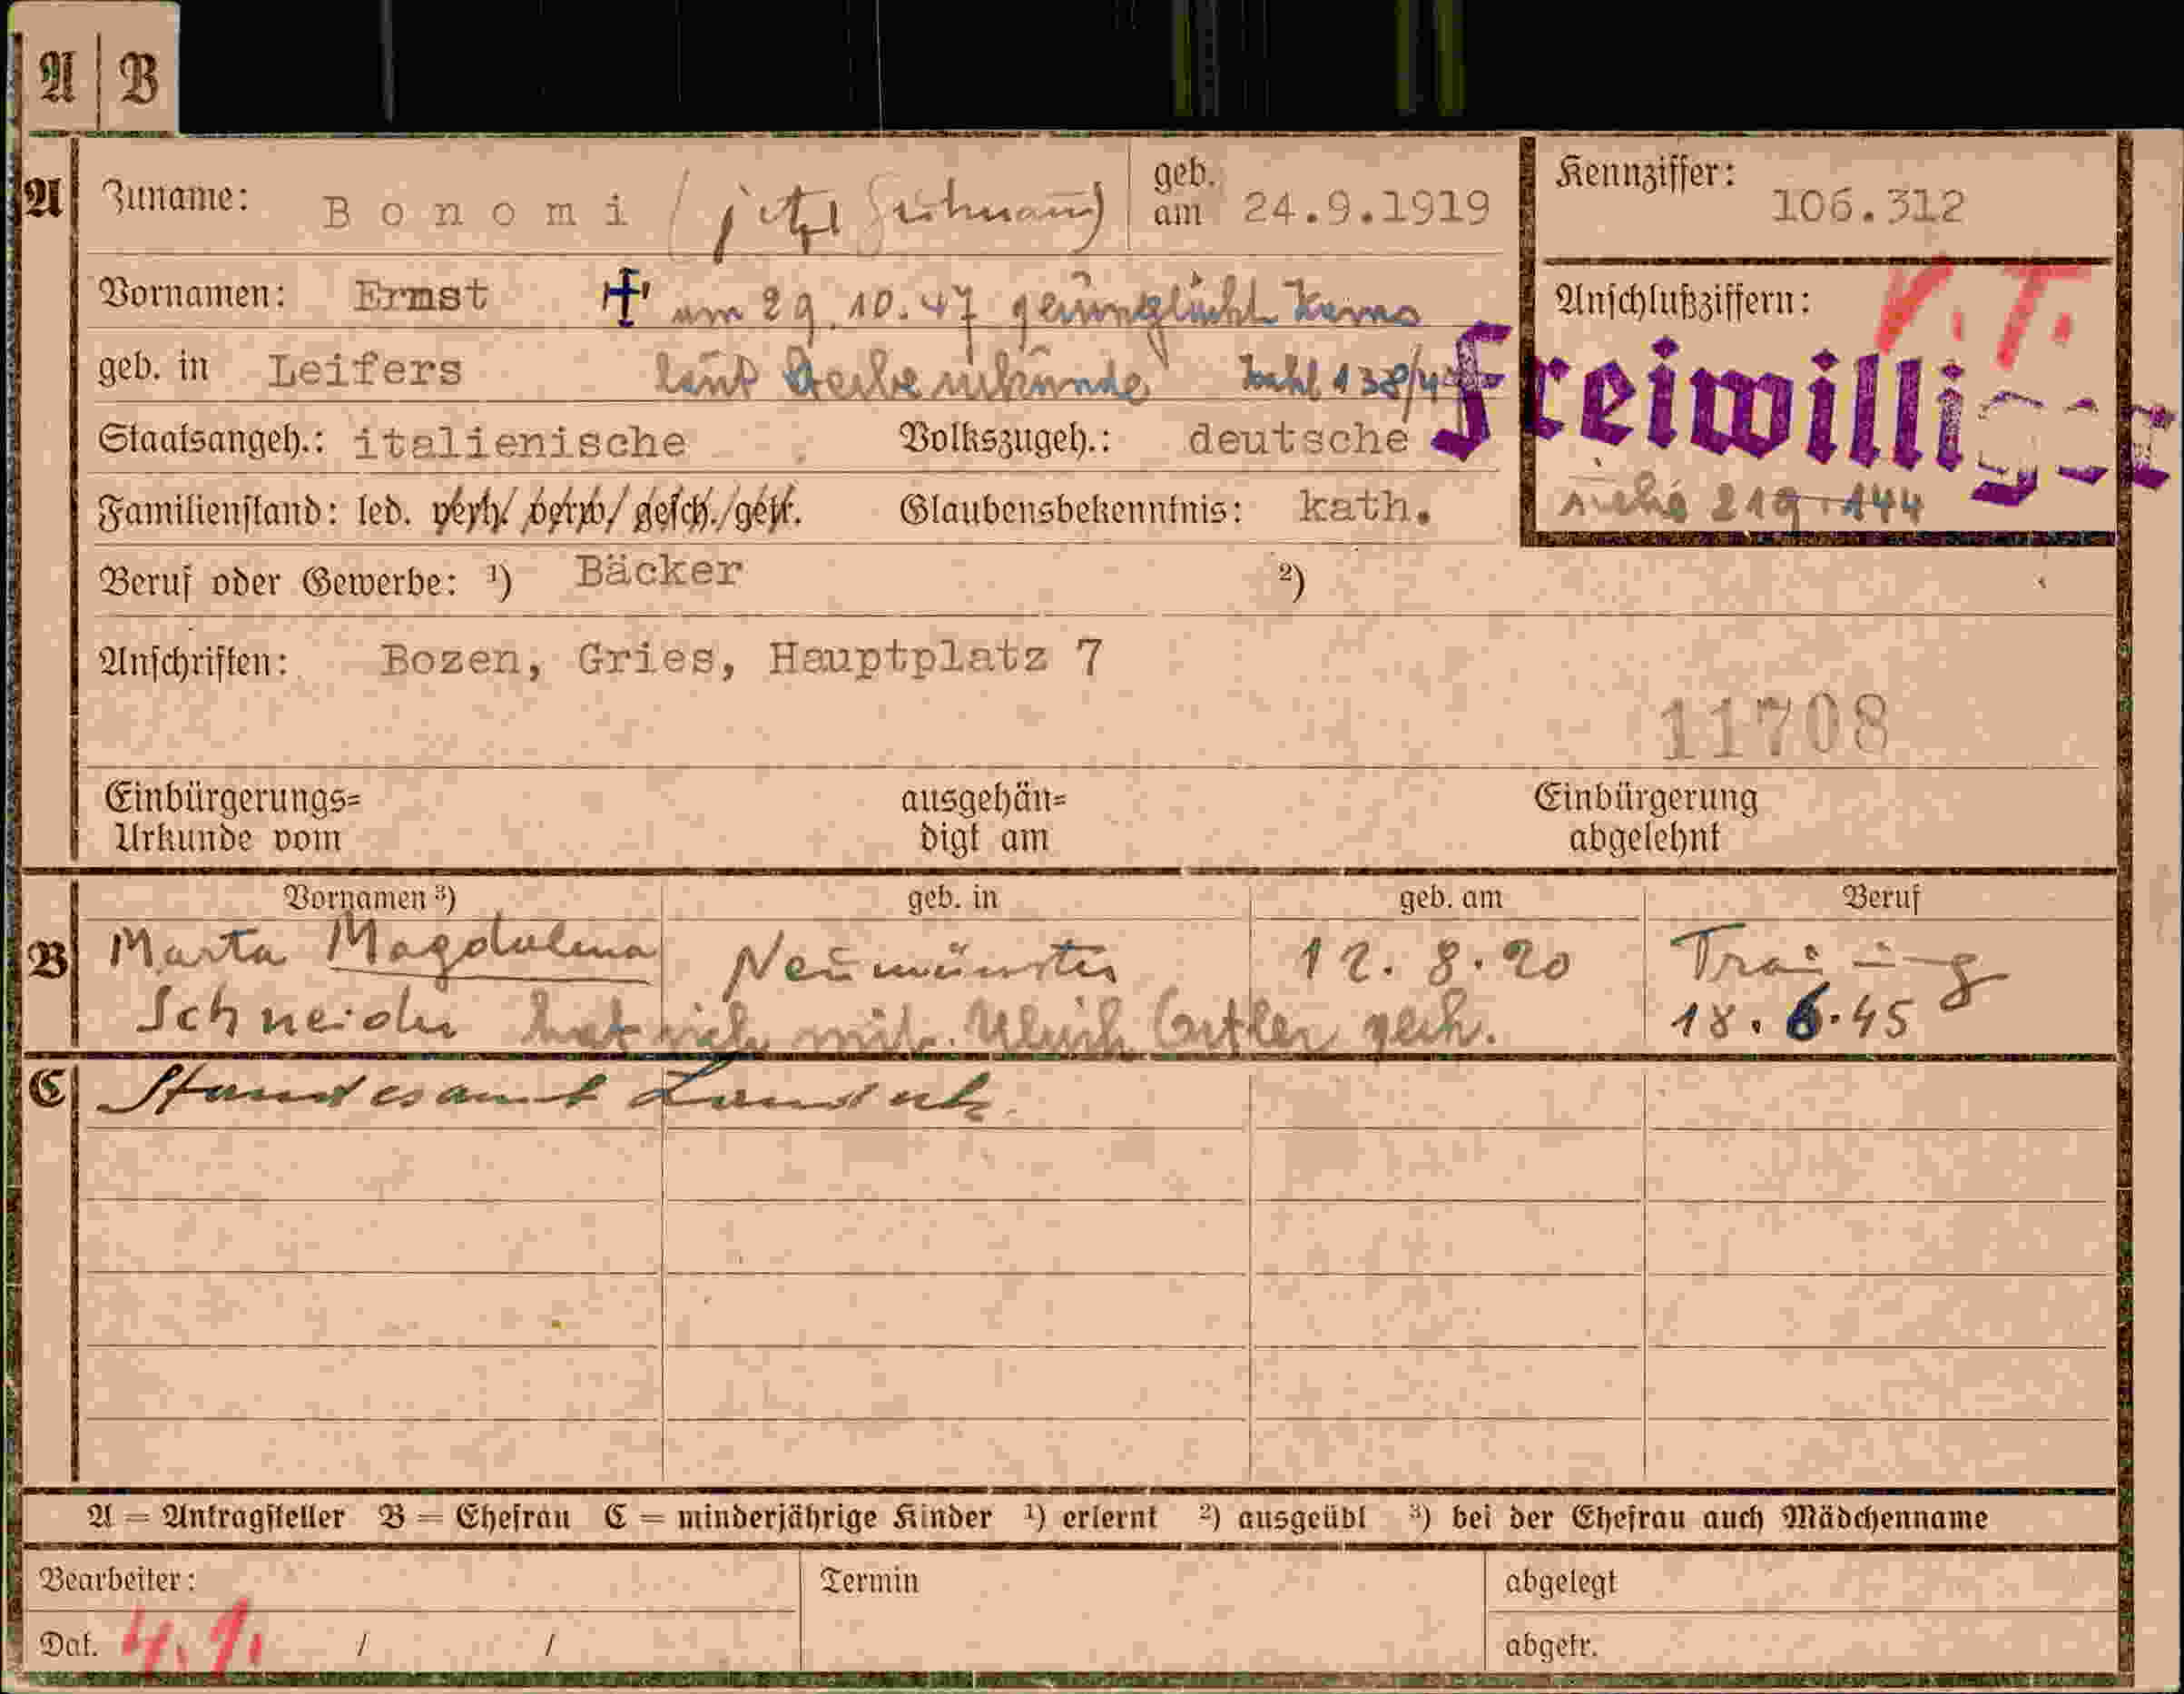 A | B
A Zuname: Bonomi (jetzt geb. am 24.9.1919 Kennziffer: 106.312
Vornamen: Ernst † am 29.10.47 Anschlußziffern: V.T.
geb. in Leifers laut Sterbeurkunde Zahl 138/47 Freiwilliger
Staatsangeh.: italienische Volkszugeh.: deutsche
Familienstand: led. verh./verw./gesch./getr. Glaubensbekenntnis: kath. siehe 219.144
Beruf oder Gewerbe: 1) Bäcker 2)
Anschriften: Bozen, Gries, Hauptplatz 7
11708
Einbürgerungs= Urkunde vom ausgehän= digt am Einbürgerung abgelehnt
Vornamen 3) geb. in geb. am Beruf
B Marta Magdalena Neumünster 12.8.20 Trauung
Schneider hat sich mit Ulrich gesch. 18.6.45
C Standesamt Landeck
A = Antragsteller B = Ehefrau C = minderjährige Kinder 1) erlernt 2) ausgeübt 3) bei der Ehefrau auch Mädchenname
Bearbeiter: Termin abgelegt
Dat. 4.1. / / abgetr.